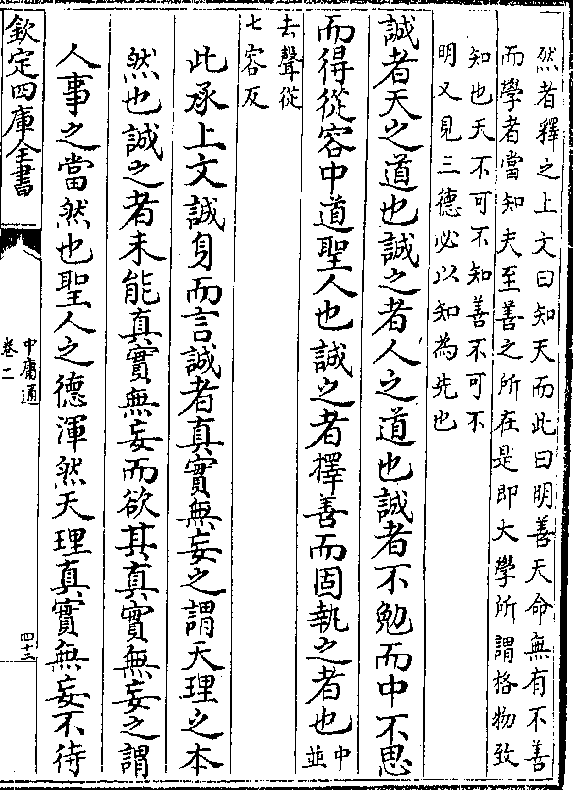 然者釋之上文曰知天而此曰明善天命無有不善
而學者當知夫至善之所在是即大學所謂格物致
知也天不可不知善不可不
明又見三德必以知為先也
誠者天之道也誠之者人之道也誠者不勉而中不思
而得從容中道聖人也誠之者擇善而固執之者也中
並
去聲從
七容反
此承上文誠身而言誠者真實無妄之謂天理之本
然也誠之者未能真實無妄而欲其真實無妄之謂
人事之當然也聖人之德渾然天理真實無妄不待
欽定四庫全書
中庸通
卷二
四十二